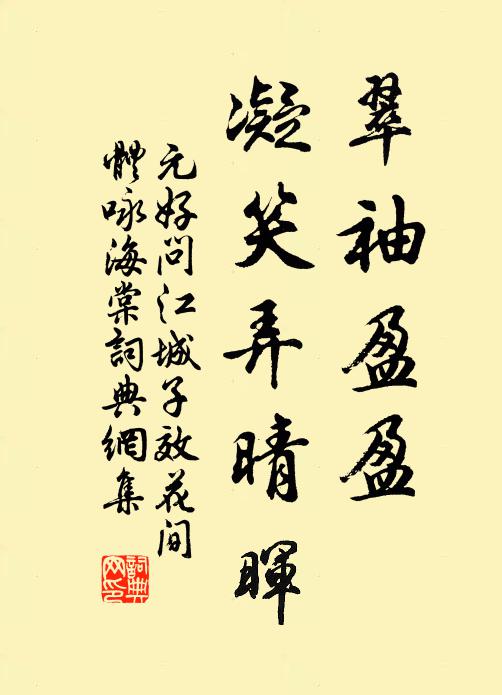 翠袖盈盈
凝笑弄晴暉
元好問江城子效花間
體咏海棠詞典網集
詞典
网印